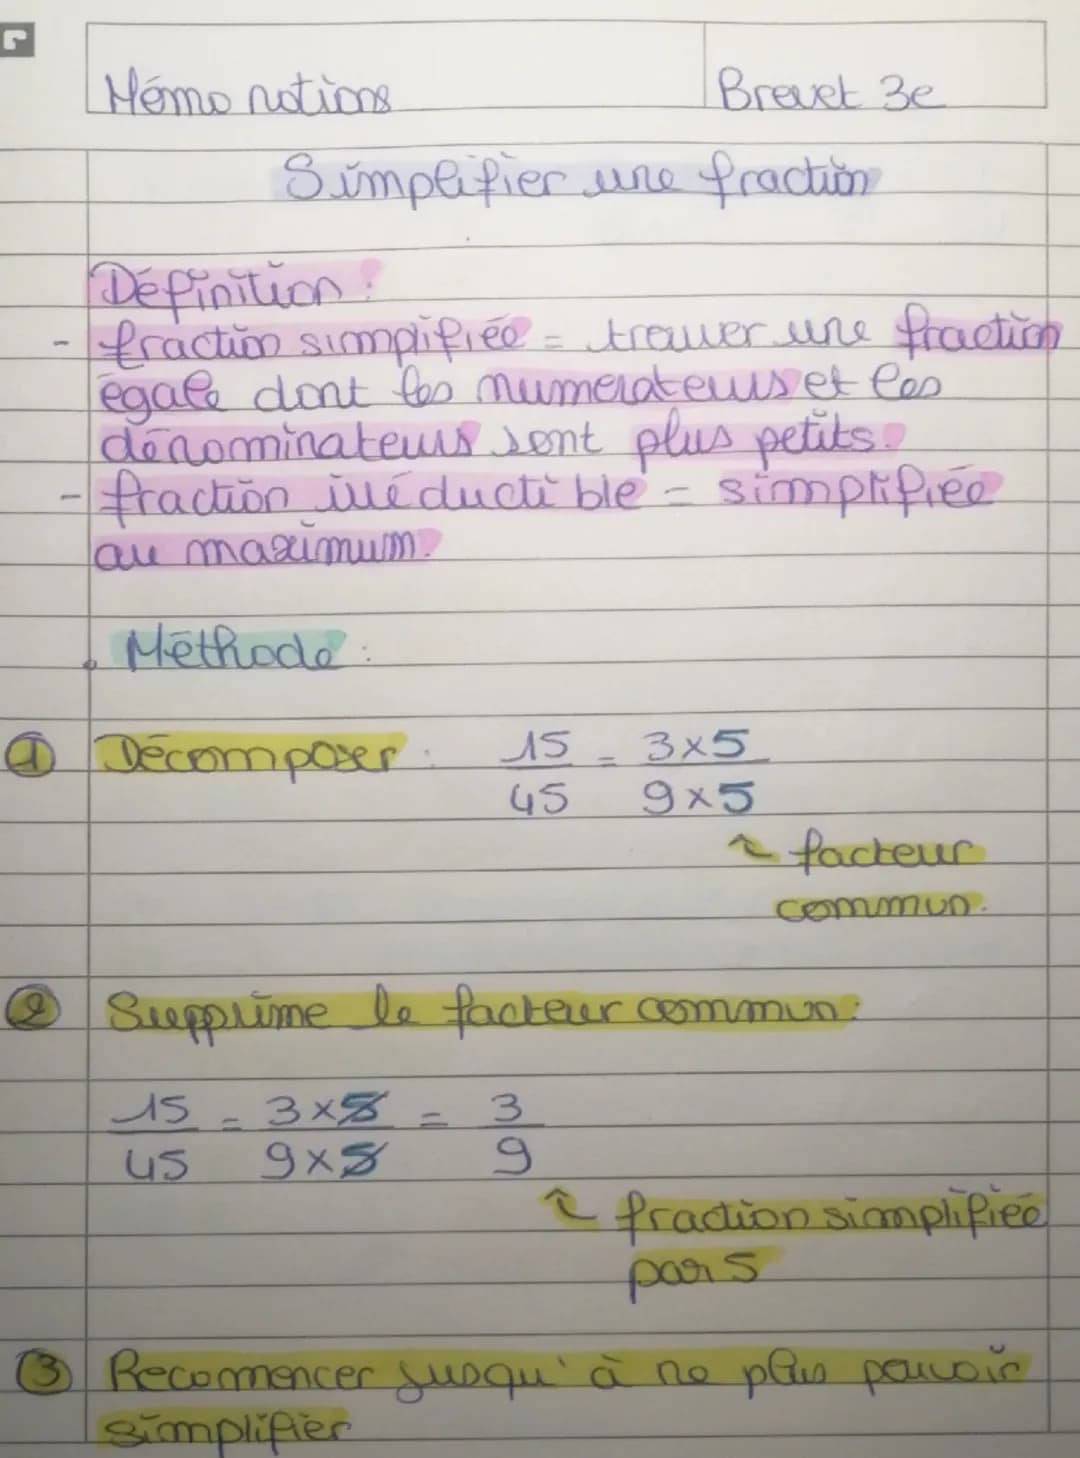 Mémo notions Brevet 3e
Simplifier une fraction
Définition :
- fraction simplifiée = trouver une fraction
égale dont les numerateurs et les
dénominateurs sont plus petits.
- fraction irréductible = simplifiée
au maximum.
Méthode :
① Décomposer : 15/45 = 3×5/9×5
facteur
commun.
② Supprime le facteur commun :
15/45 = 3×5/9×5 = 3/9
fraction simplifiée
par 5
③ Recommencer jusqu'à ne plus pouvoir
simplifier